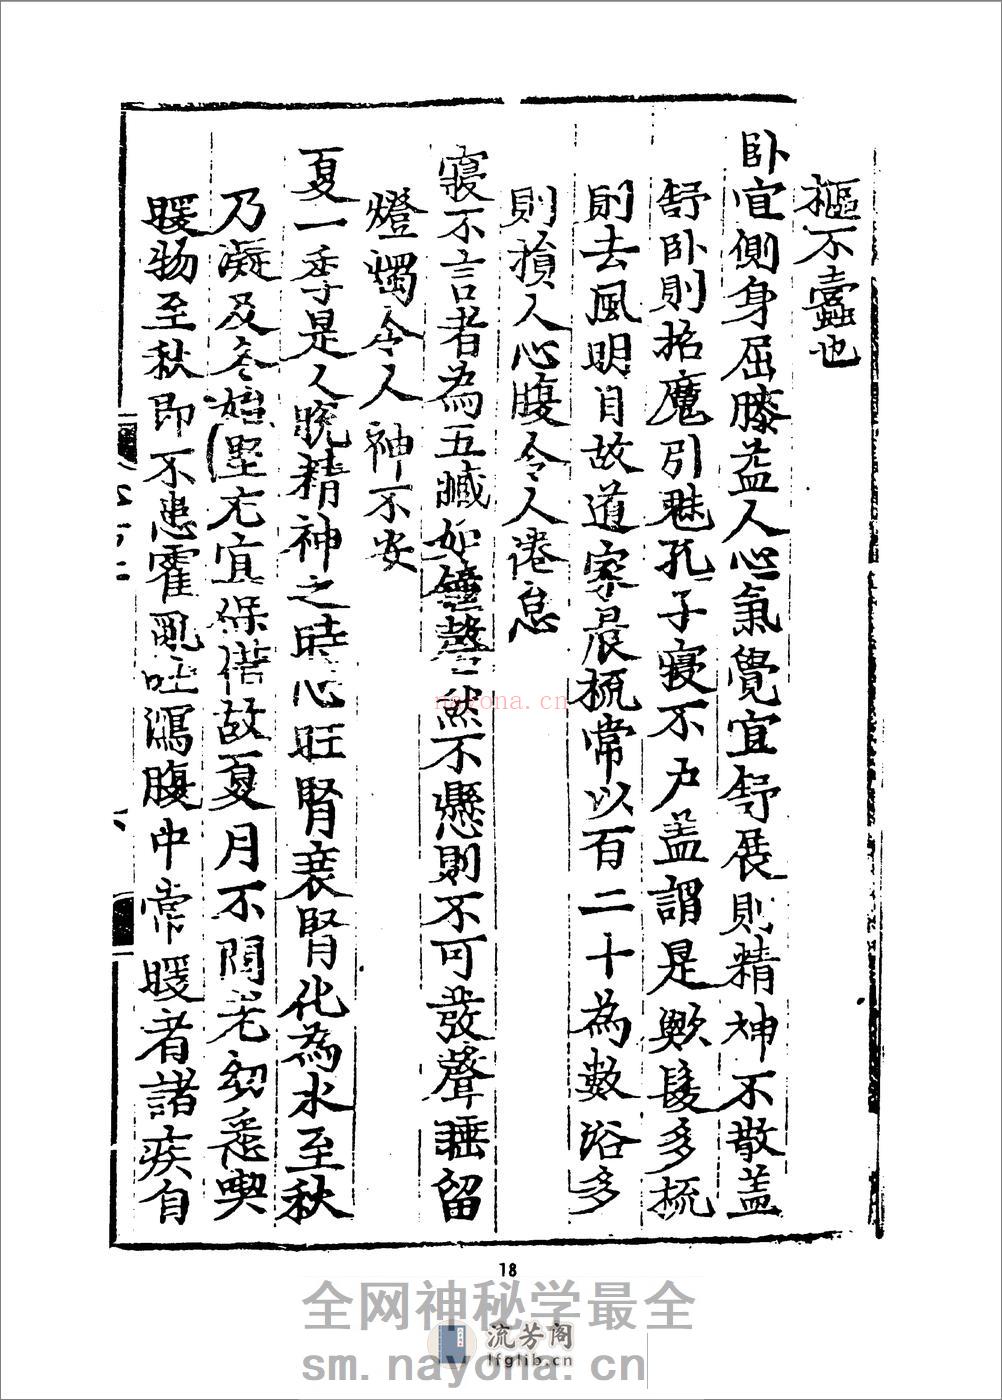 樞不蠹也
卧宜側身屈膝益人心氣覺宜舒展則精神不散盖
舒卧則招魔引魅孔子寢不尸盖謂是歟髮多梳
則去風明目故道家晨梳常以百二十為數浴多
則損人心腹令人倦怠
寢不言者為五臟如鐘磬然不懸則不可發聲睡留
燈燭令人神不安
夏一季是人脱精神之時心旺腎衰腎化為水至秋
乃凝及冬始堅尤宜保惜故夏月不問老幼悉喫
暖物至秋即不患霍亂吐瀉腹中常暖者諸疾自
nayona.cn
18
全网神秘学最全
流芳阁
lfglib.cn
sm.nayona.cn